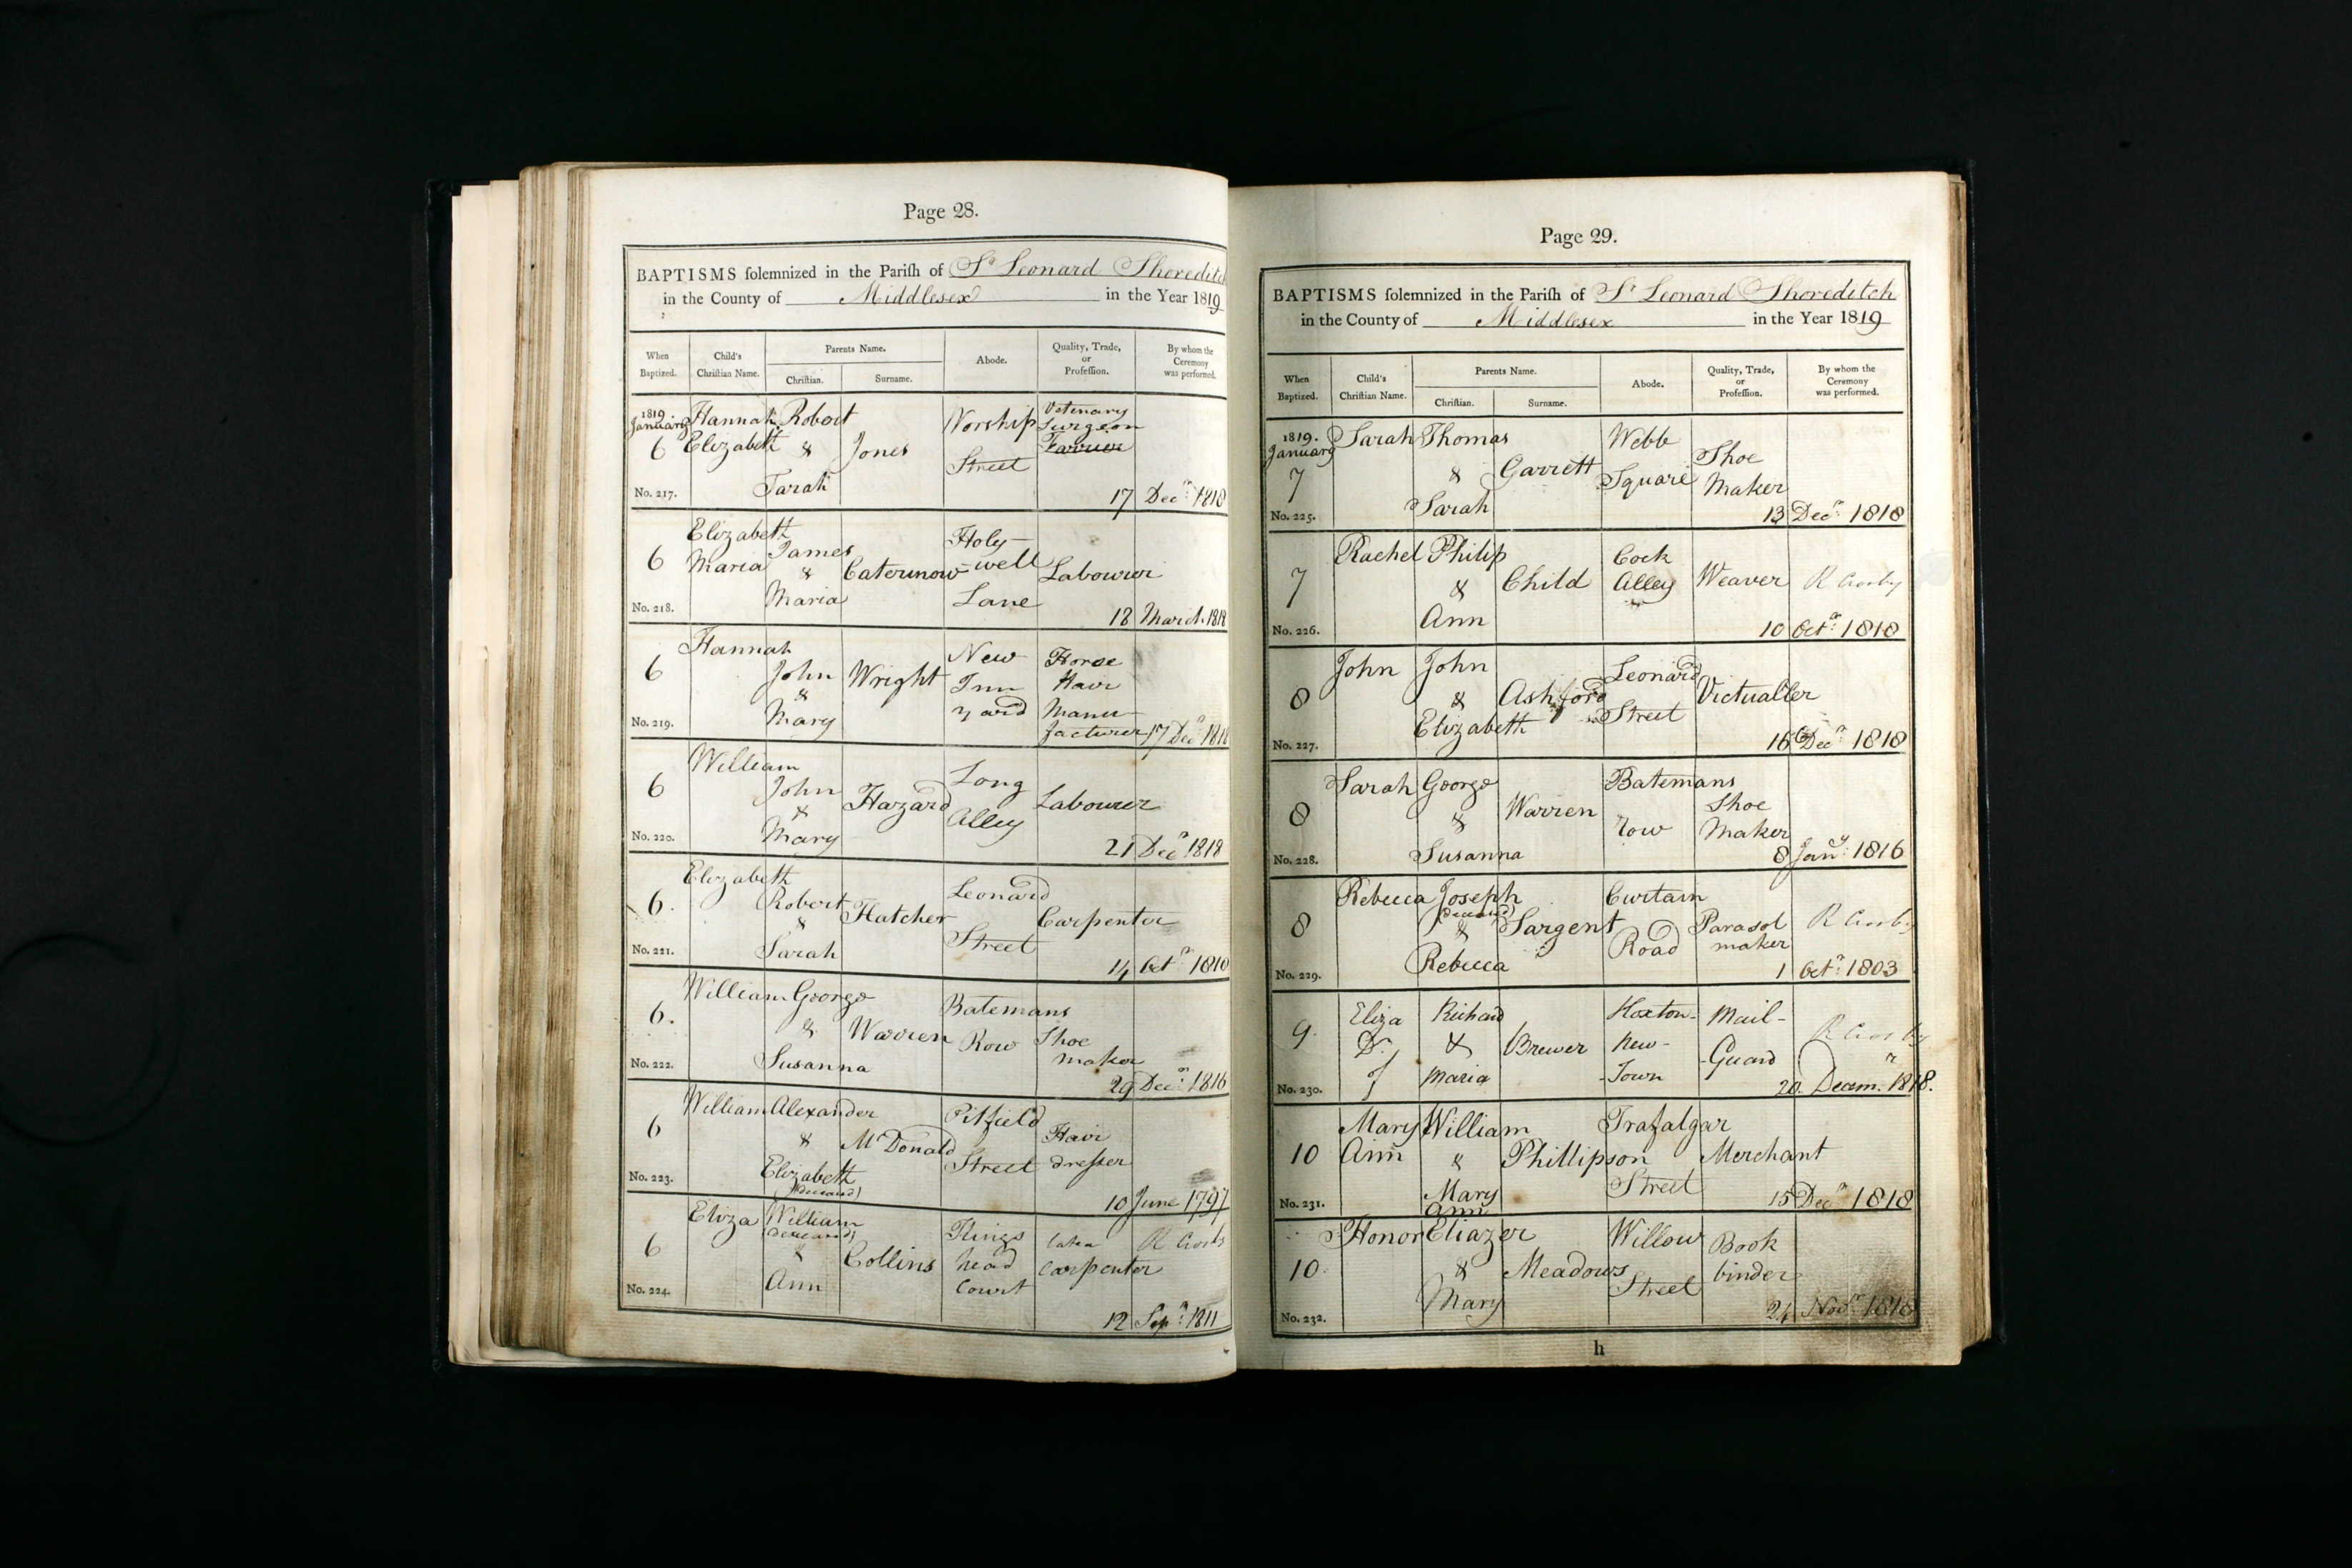 Page 28.
BAPTISMS ſolemnized in the Pariſh of St Leonard Shoreditch
in the County of Middlesex in the Year 1819
When Baptized. Child's Chriſtian Name. Parents Name. Chriſtian. Surname. Abode. Quality, Trade, or Profeſſion. By whom the Ceremony was performed.
1819 January 6 No. 217. Hannah Elizabeth Robert & Sarah Jones Worship Street Vetenary Surgeon Farrier 17 Decr 1818
6 No. 218. Elizabeth Maria James & Maria Holy-well Lane Labourer 18 March 1818
6 No. 219. Hannah John & Mary Wright New Inn Yard Horse Hair Manu-facturer 17 Decr 1818
6 No. 220. William John & Mary Hazard Long Alley Labourer 21 Decr 1818
6. No. 221. Elizabeth Robert & Sarah Hatcher Leonard Street Carpenter 14 Octr 1818
6. No. 222. William George & Susanna Warren Batemans Row Shoe maker 29 Decr 1816
6 No. 223. William Alexander & Elizabeth (deceased) McDonald Pitfield Street Hair dresser 10 June 1797
6 No. 224. Eliza William (deceased) & Ann Collins Kings head Court Carpenter 12 Sepr 1811
Page 29.
BAPTISMS ſolemnized in the Pariſh of St Leonard Shoreditch
in the County of Middlesex in the Year 1819
When Baptized. Child's Chriſtian Name. Parents Name. Chriſtian. Surname. Abode. Quality, Trade, or Profeſſion. By whom the Ceremony was performed.
1819. January 7 No. 225. Sarah Thomas & Sarah Garrett Webb Square Shoe Maker 13 Decr 1818
7 No. 226. Rachel Philip & Ann Child Cock Alley Weaver R Crosby 10 Octr 1818
8 No. 227. John John & Elizabeth Ashford Leonard Street Victualler 16 Decr 1818
8 No. 228. Sarah George & Susanna Warren Batemans row Shoe Maker 8 Jany 1816
8 No. 229. Rebecca Joseph (deceased) & Rebecca Sargent Curtain Road Parasol maker R Crosby 1 Octr 1803
9. No. 230. Eliza Richard & Maria Brewer Hoxton- New- Town Mail- Guard R Crosby 20. Decemr 1818.
10 No. 231. Mary Ann William & Mary Ann Phillipson Trafalgar Street Merchant 15 Decr 1818
10. No. 232. Honor Eliazer & Mary Meadows Willow Street Book binder 24 Novr 1818
h